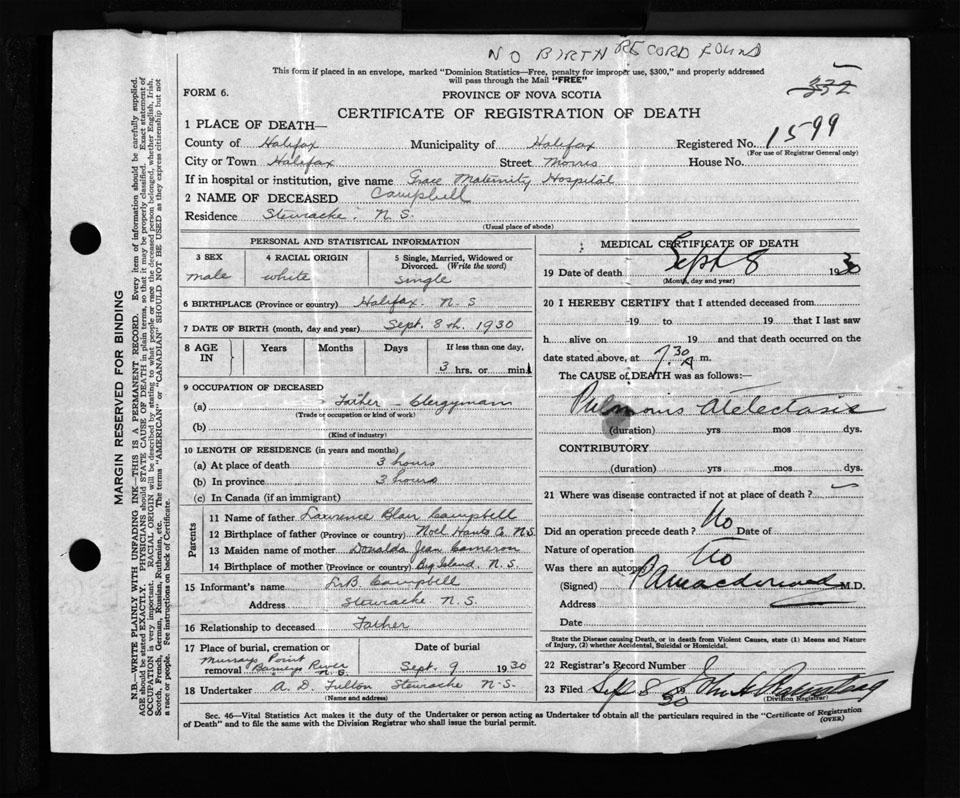 NO BIRTH RECORD FOUND
This form if placed in an envelope, marked "Dominion Statistics—Free, penalty for improper use, $300," and properly addressed
will pass through the Mail "FREE"
332
FORM 6.
PROVINCE OF NOVA SCOTIA
CERTIFICATE OF REGISTRATION OF DEATH
1 PLACE OF DEATH—
County of Halifax Municipality of Halifax Registered No. 1599
(For use of Registrar General only)
City or Town Halifax Street Morris House No.
If in hospital or institution, give name Grace Maternity Hospital
2 NAME OF DECEASED Campbell
Residence Stewiacke. N.S.
(Usual place of abode)
PERSONAL AND STATISTICAL INFORMATION
3 SEX 4 RACIAL ORIGIN 5 Single, Married, Widowed or
Divorced. (Write the word)
male white single
6 BIRTHPLACE (Province or country) Halifax. N.S
7 DATE OF BIRTH (month, day and year) Sept. 8th. 1930
8 AGE IN Years Months Days If less than one day,
3 hrs. or min.
9 OCCUPATION OF DECEASED
(a) Father - Clergyman
(Trade or occupation or kind of work)
(b)
(Kind of industry)
10 LENGTH OF RESIDENCE (in years and months)
(a) At place of death 3 hours
(b) In province 3 hours
(c) In Canada (if an immigrant)
Parents
11 Name of father Lawrence Blair Campbell
12 Birthplace of father (Province or country) Noel Hants Co. N.S.
13 Maiden name of mother Donalda Jean Cameron
14 Birthplace of mother (Province or country) Big Island. N.S.
15 Informant's name L.B. Campbell
Address Stewiacke N.S.
16 Relationship to deceased Father
17 Place of burial, cremation or removal Date of burial
Murrays Point
Barneys River
N.S. Sept. 9 1930
18 Undertaker A. D. Fulton Stewiacke N.S.
(Name and address)
MEDICAL CERTIFICATE OF DEATH
19 Date of death Sept 8 1930
(Month, day and year)
20 I HEREBY CERTIFY that I attended deceased from
19 to 19 that I last saw
h alive on 19 and that death occurred on the
date stated above, at 7.30 A m.
The CAUSE of DEATH was as follows:—
Pulmonis Atelectasis
(duration) yrs mos dys.
CONTRIBUTORY
(duration) yrs mos dys.
21 Where was disease contracted if not at place of death?
Did an operation precede death? No Date of
Nature of operation
Was there an autopsy No
(Signed) M.D.
Address
Date
State the Disease causing Death, or in death from Violent Causes, state (1) Means and Nature
of Injury, (2) whether Accidental, Suicidal or Homicidal.
22 Registrar's Record Number
23 Filed Sep 8 1930 John
(Division Registrar)
Sec. 46—Vital Statistics Act makes it the duty of the Undertaker or person acting as Undertaker to obtain all the particulars required in the "Certificate of Registration
of Death" and to file the same with the Division Registrar who shall issue the burial permit.
(OVER)
MARGIN RESERVED FOR BINDING
N.B.—WRITE PLAINLY WITH UNFADING INK—THIS IS A PERMANENT RECORD. Every item of information should be carefully supplied.
AGE should be stated EXACTLY. PHYSICIANS should STATE CAUSE OF DEATH in plain terms, so that it may be properly classified. Exact statement of
OCCUPATION is very important. RACIAL ORIGIN will be described by stating to what people or race the deceased person belonged, whether English, Irish,
Scotch, French, German, Russian, Ruthenian, etc. The terms "AMERICAN" or "CANADIAN" SHOULD NOT BE USED as they express citizenship but not
a race or people. See instructions on back of Certificate.